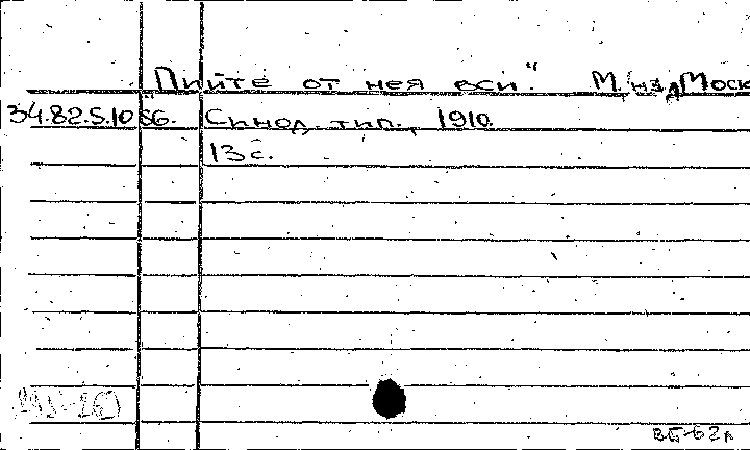 "Пийте от нея вси." М., изд. Моск
34.82.5.10 56. Синод. тип., 1910.
13 с.